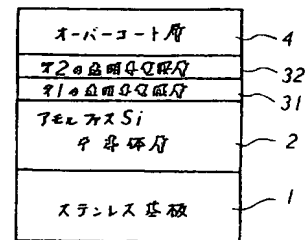 オーバーコート層
4
第2の透明導電膜層
32
第1の透明導電膜層
31
アモルファスSi
半導体層
2
ステンレス基板
1